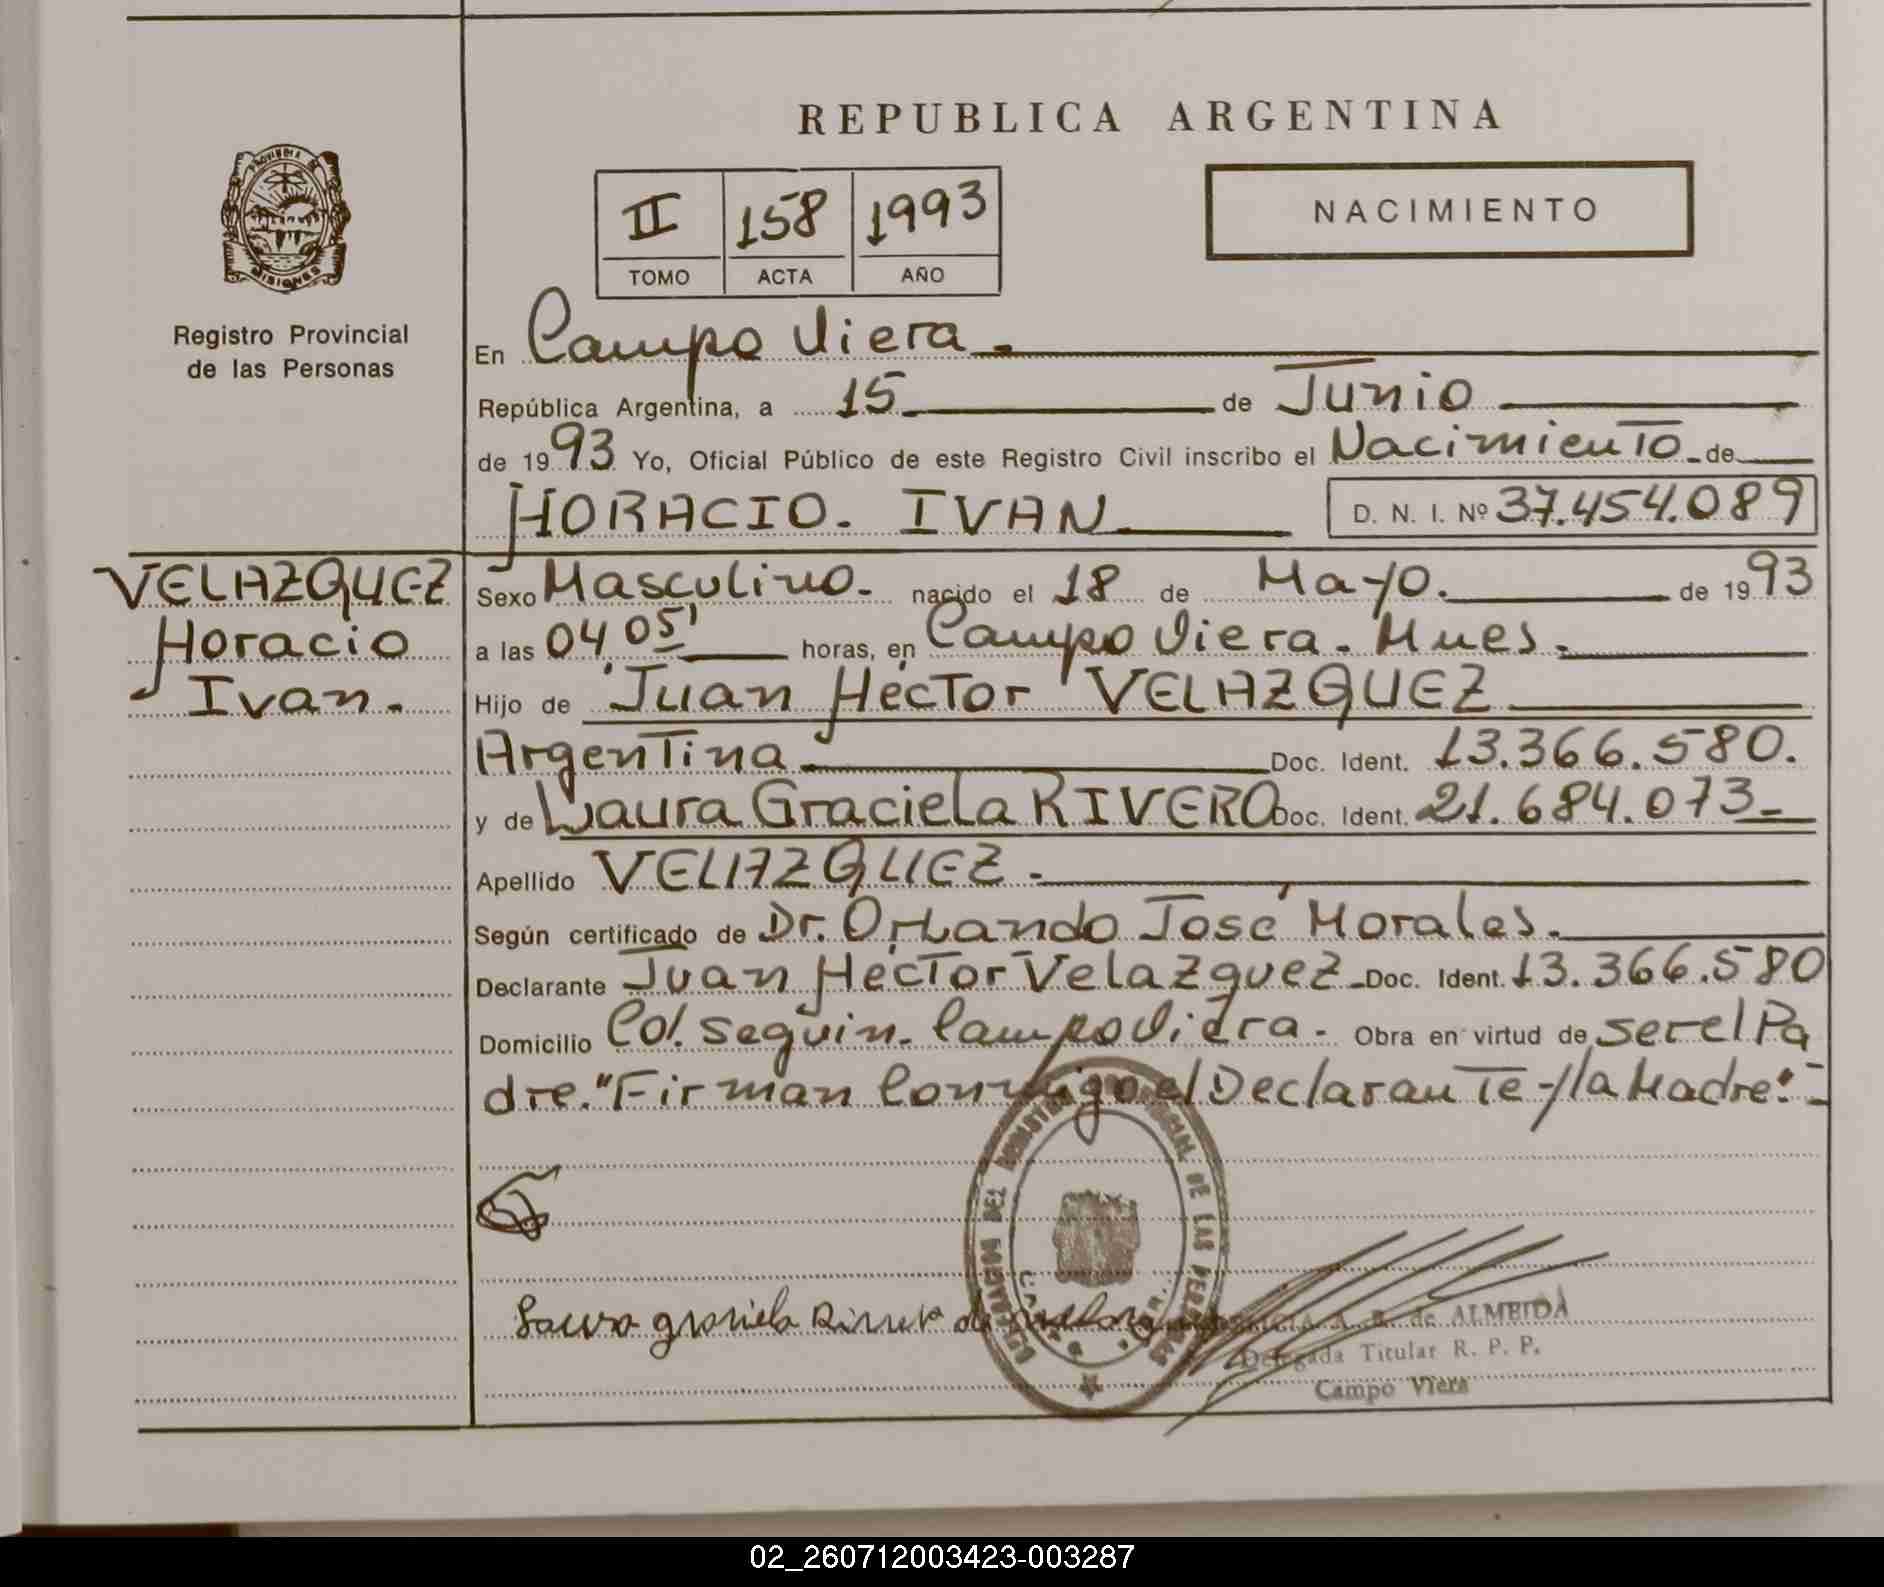 REPUBLICA ARGENTINA
II 158 1993
TOMO ACTA AÑO
NACIMIENTO
PROVINCIA DE
MISIONES
Registro Provincial
de las Personas
En Campo Viera.
República Argentina, a 15 de Junio
de 1993 Yo, Oficial Público de este Registro Civil inscribo el Nacimiento de
HORACIO. IVAN D. N. I. Nº 37.454.089
VELAZQUEZ
Horacio
Ivan.
Sexo Masculino. nacido el 18 de Mayo. de 1993
a las 04,05' horas, en Campo Viera. Mnes.
Hijo de Juan Héctor VELAZQUEZ
Argentina Doc. Ident. 13.366.580.
y de Laura Graciela RIVERO Doc. Ident. 21.684.073
Apellido VELAZQUEZ.
Según certificado de Dr. Orlando José Morales.
Declarante Juan Héctor Velazquez Doc. Ident. 13.366.580
Domicilio Col. Seguin. Campo Viera. Obra en virtud de ser el Pa
dre. "Firman Conmigo el Declarante y la Madre".
DEL REGISTRO PROVINCIAL DE LAS PERSONAS
Laura graciela Rivero de
A. R. de ALMEIDA
Delegada Titular R. P. P.
Campo Viera
02_260712003423-003287